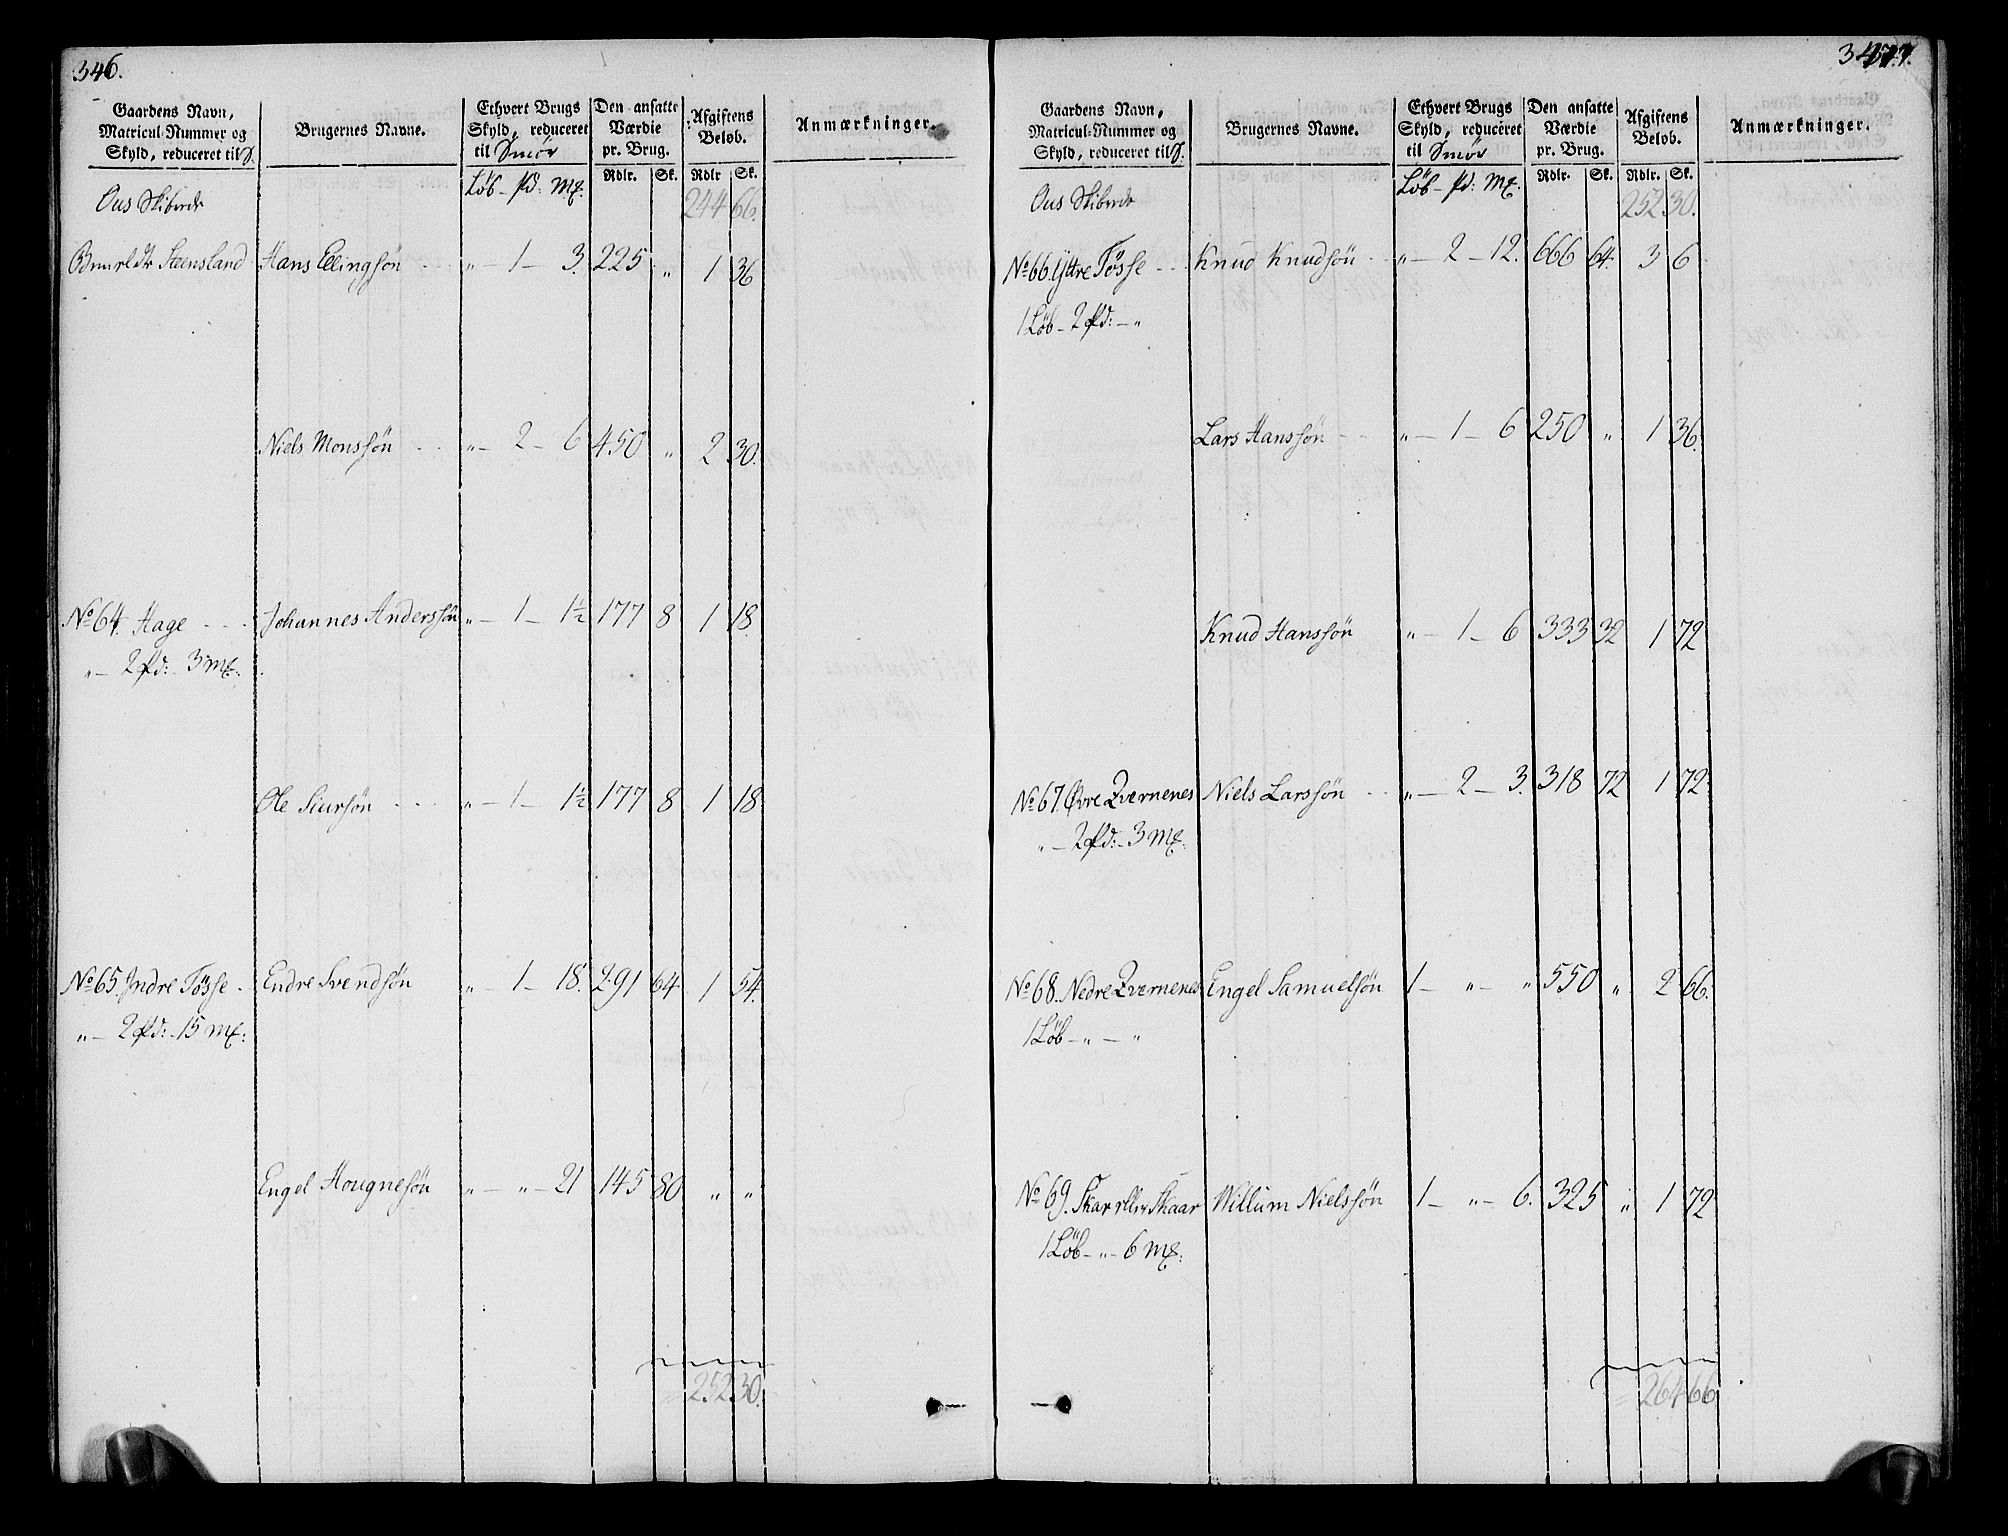 346.
Gaardens Navn,
Matricul-Nummer og
Skyld, reduceret til S.
Brugernes Navne.
Ethvert Brugs
Skyld, reduceret
til Smør
Den ansatte
Værdie
pr. Brug.
Afgiftens
Beløb.
Anmærkninger.
Løb - pd: mk.
Rdlr. Sk. Rdlr Sk.
Ous Skibrede
244 66.
Steensland Hans Ellingsøn „ - 1 - 3. 225 „ 1 36
Niels Monssøn „ - 2 - 6 450 „ 2 30.
No 64. Hage Johannes Anderssøn „ - 1 - 1½ 177 8 1 18
„ - 2 pd: 3 mk.
Ole Siursøn „ - 1 - 1½ 177 8 1 18
No 65. Indre Tösse Endre Svendsøn „ - 1 - 18. 291 64 1 54.
„ - 2 pd: - 15 mk:
Engel Hougnesøn „ - „ - 21 145 80 „ „
252 30.
347.
Gaardens Navn,
Matricul-Nummer og
Skyld, reduceret til S.
Brugernes Navne.
Ethvert Brugs
Skyld, reduceret
til Smør
Den ansatte
Værdie
pr. Brug.
Afgiftens
Beløb.
Anmærkninger.
Løb - pd: mk.
Rdlr. Sk. Rdlr. Sk.
Ous Skibrede
252 30.
No 66. Yttre Tösse Knud Knudsøn „ - 2 - 12. 666 64. 3 6
1 Løb - 2 pd: - „
Lars Hanssøn „ - 1 - 6 250 „ 1 36.
Knud Hanssøn „ - 1 - 6 333 32 1 72
No 67. Øvre Qvernenes Niels Larssøn „ - 2 - 3. 318 72 1 72.
„ - 2 pd: - 3 mk.
No 68. Nedre Qvernenes Engel Samuelsøn 1 - „ - „ 550 „ 2 66.
1 Løb - „ - „
No 69. Skar eller Skaar Willum Nielssøn 1 - „ - 6. 325 „ 1 72
1 Løb - „ - 6 mk.
264 66